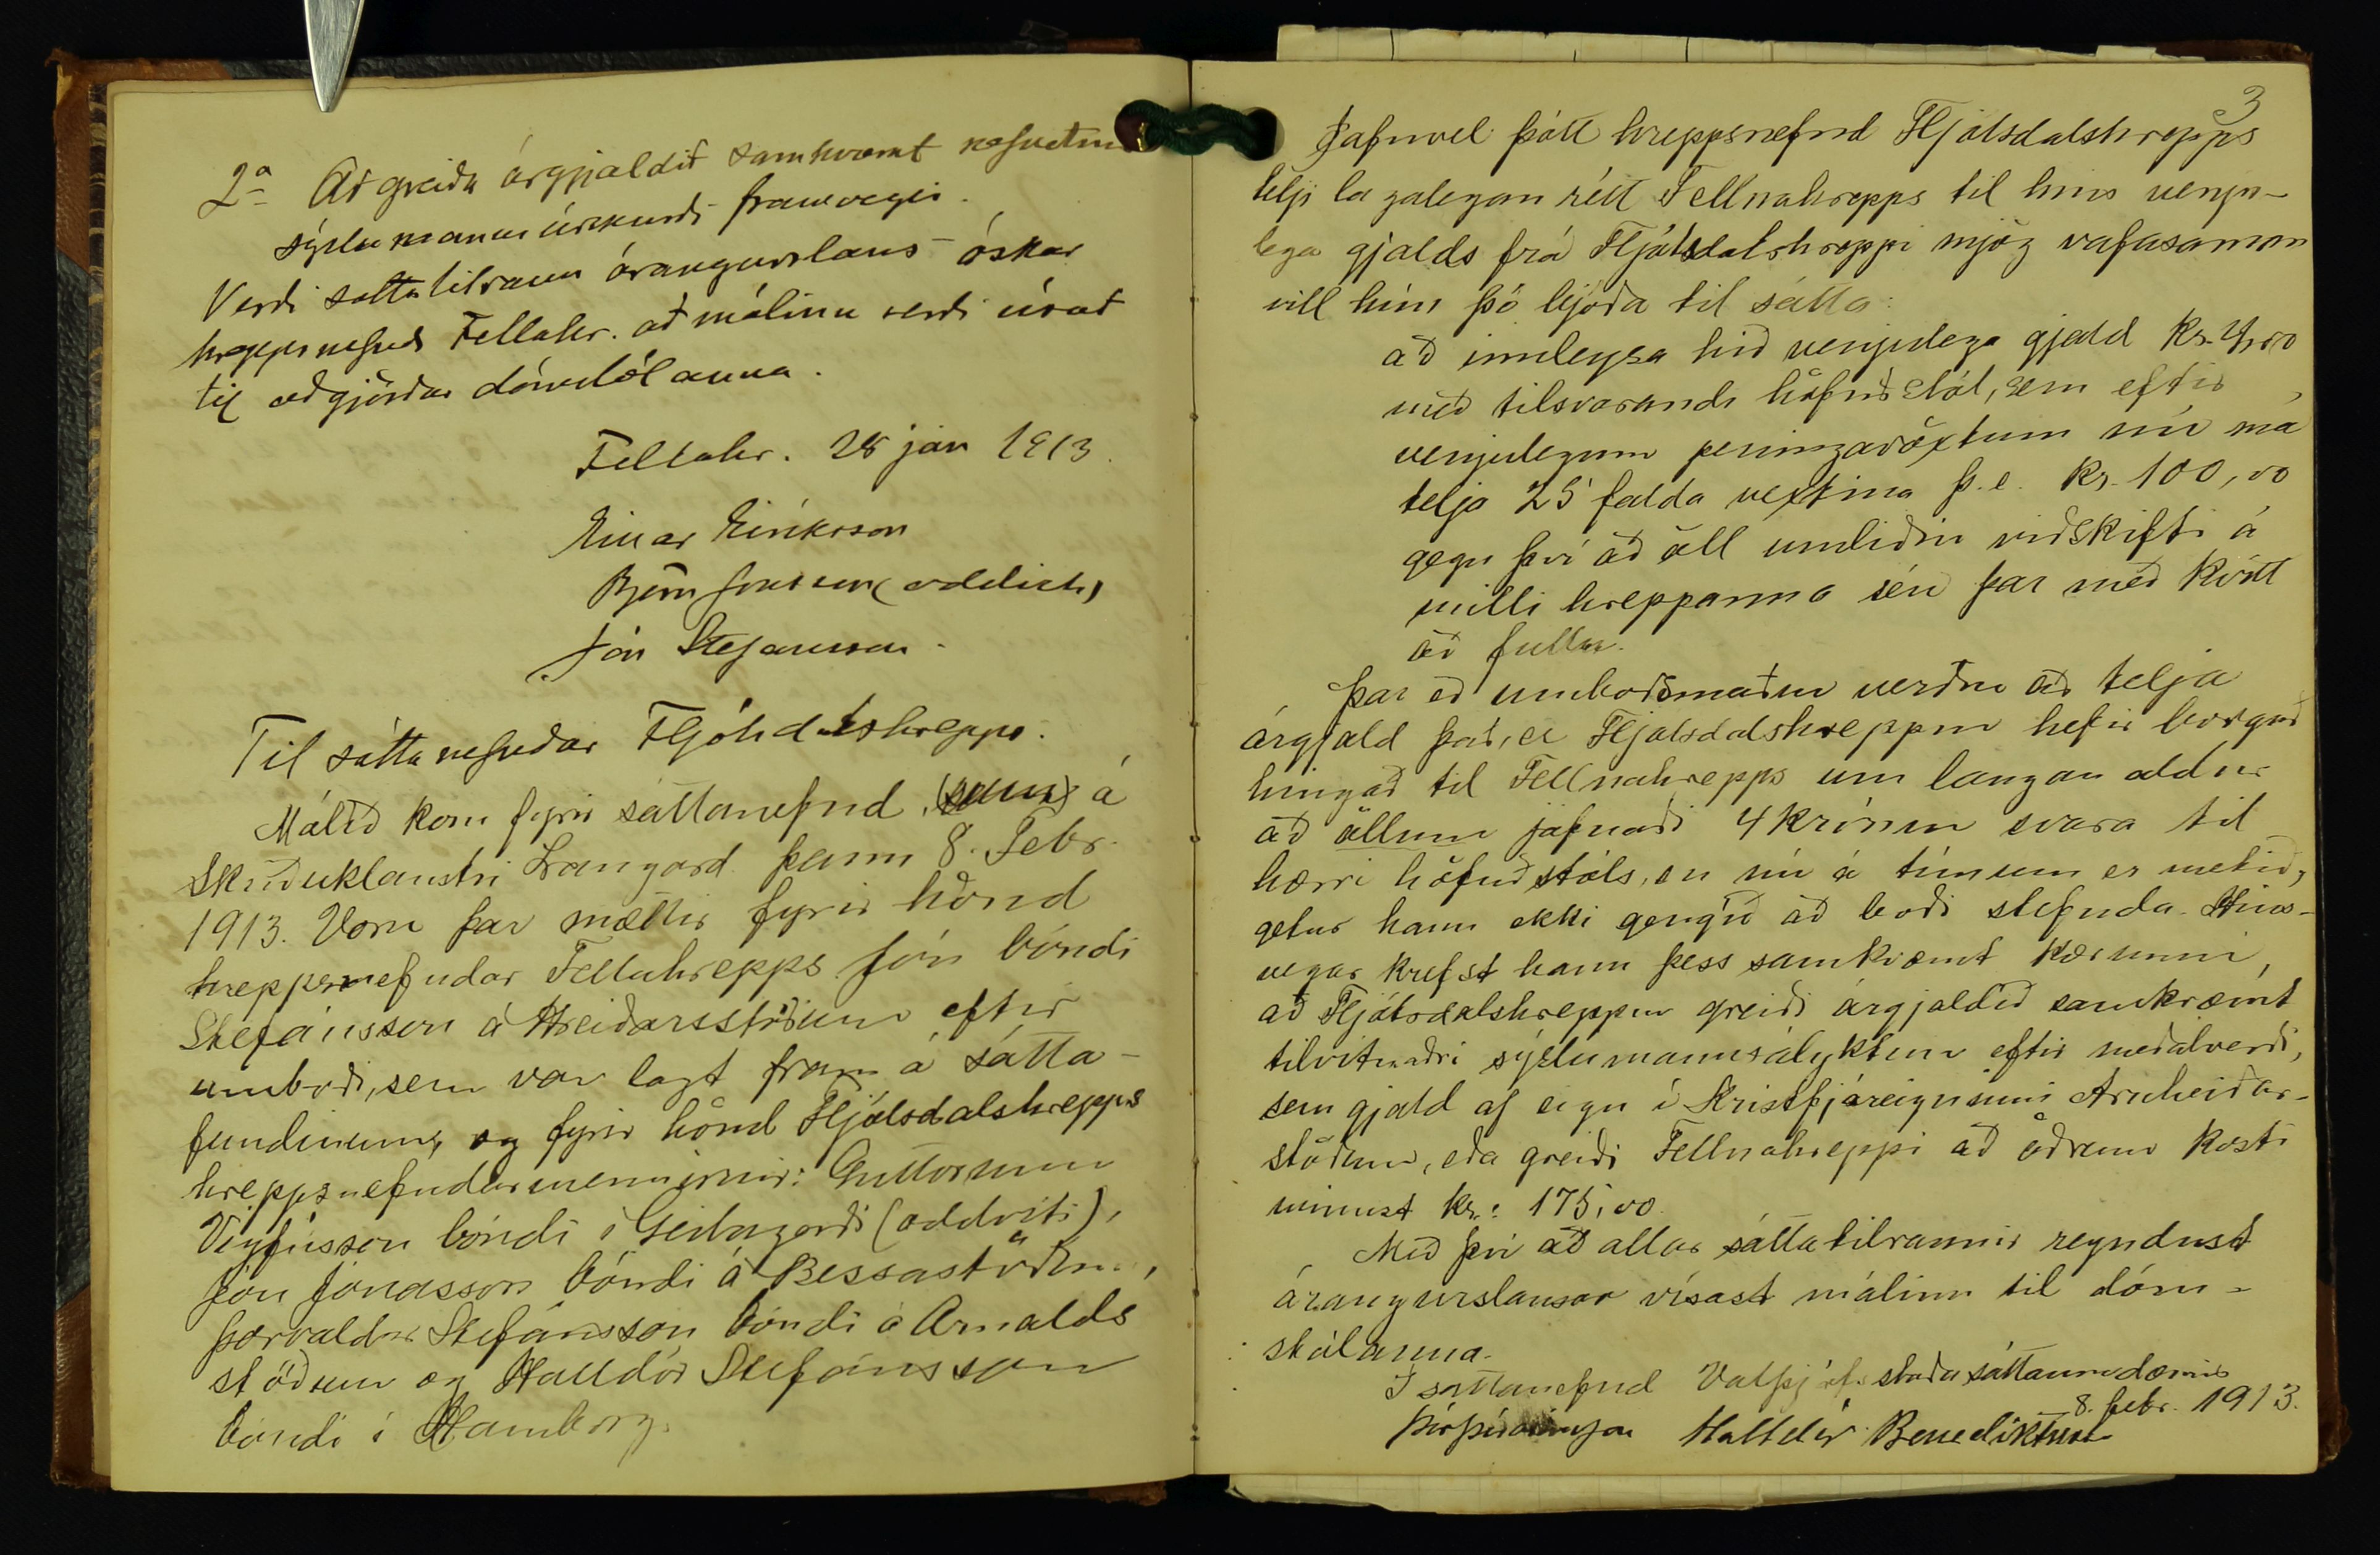 2a Að greiða árgjaldið samkvæmt nefndum
sýslumannsúrskurði framvegis.
Verði sáttatilraun árangurslaus – óskar
hreppsnefnd Fellahr. að málinu verði vísað
til aðgjörðar dómstólanna.
Fellahr. 28 jan 1913.
Einar Eiríksson
Björn Jónsson (oddviti)
Jón Stefánsson.
Til sáttanefndar Fljótsdalshrepps.
Málið kom fyrir sáttanefnd á
Skriðuklaustri Laugard. þann 8. Febr.
1913. Voru þar mættir fyrir hönd
hreppsnefndar Fellahrepps Jón bóndi
Stefánsson á Hreiðarsstöðum eftir
umboði, sem var lagt fram á sátta-
fundinum, og fyrir hönd Fljótsdalshrepps
hreppsnefndarmennirnir: Guttormur
Vigfússon bóndi í Geitagerði (oddviti),
Jón Jónasson bóndi á Bessastöðum,
Þorvaldur Stefánsson bóndi á Arnalds
stöðum og Halldór Stefánsson
bóndi í Hamborg.
3
Jafnvel þótt hreppsnefnd Fljótsdalshrepps
telji lagalegan rétt Fellnahrepps til hins venju-
lega gjalds frá Fljótsdalshreppi mjög vafasaman
vill hún þó bjóða til sátta:
að innleysa hið venjulega gjald kr. 4,00
með tilsvarandi höfuðstól, sem eftir
venjulegum peningavöxtum nú má
telja 25 falda vextina þ.e. kr. 100,00
gegn því að öll umliðin viðskifti á
milli hreppanna séu þar með kvitt
að fullu.
Þar eð umboðsmaður verður að telja
árgjald það, er Fljótsdalshreppur hefir borgað
hingað til Fellnahrepps um langan aldur
að öllum jafnaði 4 krónur svara til
hærri höfuðstóls, en nú á tímum er metið,
getur hann ekki gengið að boði stefnda. Hins-
vegar krefst hann þess samkvæmt kærunni,
að Fljótsdalshreppur greiði árgjaldið samkvæmt
tilvitnaðri sýslumannsályktun eftir meðalverði,
sem gjald af eign í Kristfjáreigninni Arnheiðar-
stöðum, eða greiði Fellnahreppi að öðrum kosti
minnst kr: 175,00.
Með því að allar sáttatilraunir reyndust
árangurslausar vísast málinu til dóm-
stólanna.
Í sáttanefnd Valþjófsstaða sáttaumdæmis
8. febr. 1913.
Halldór Benediktsson